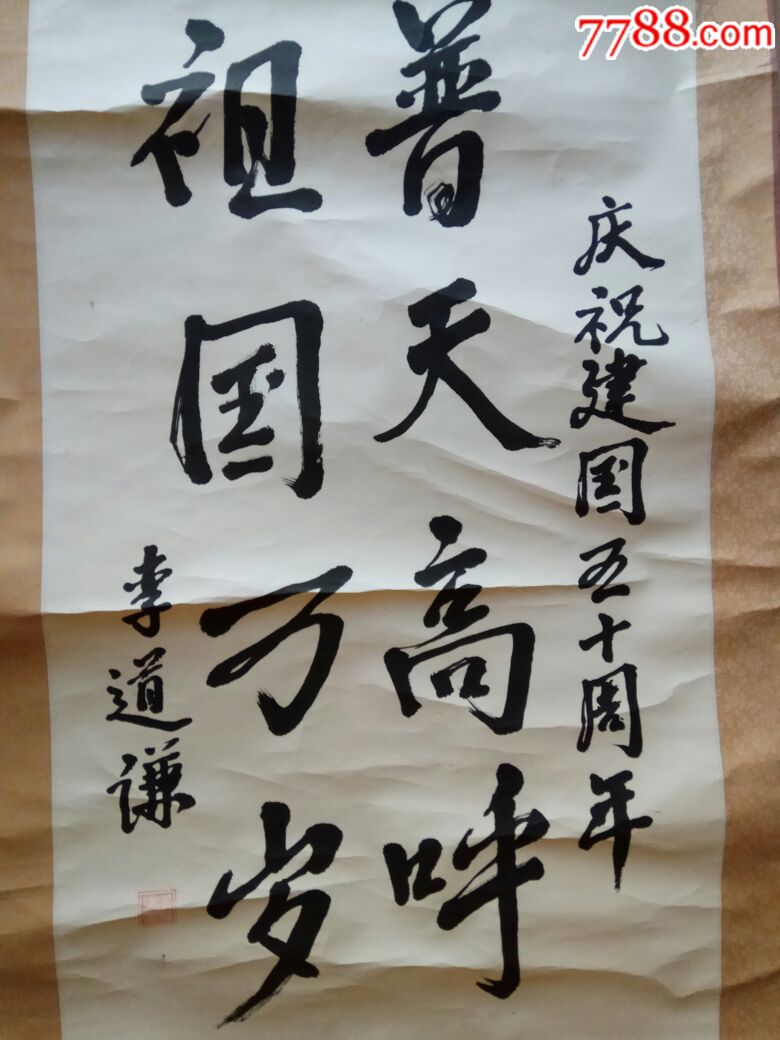 7788.com
庆祝建国五十周年
普天高呼
祖国万岁
李道谦